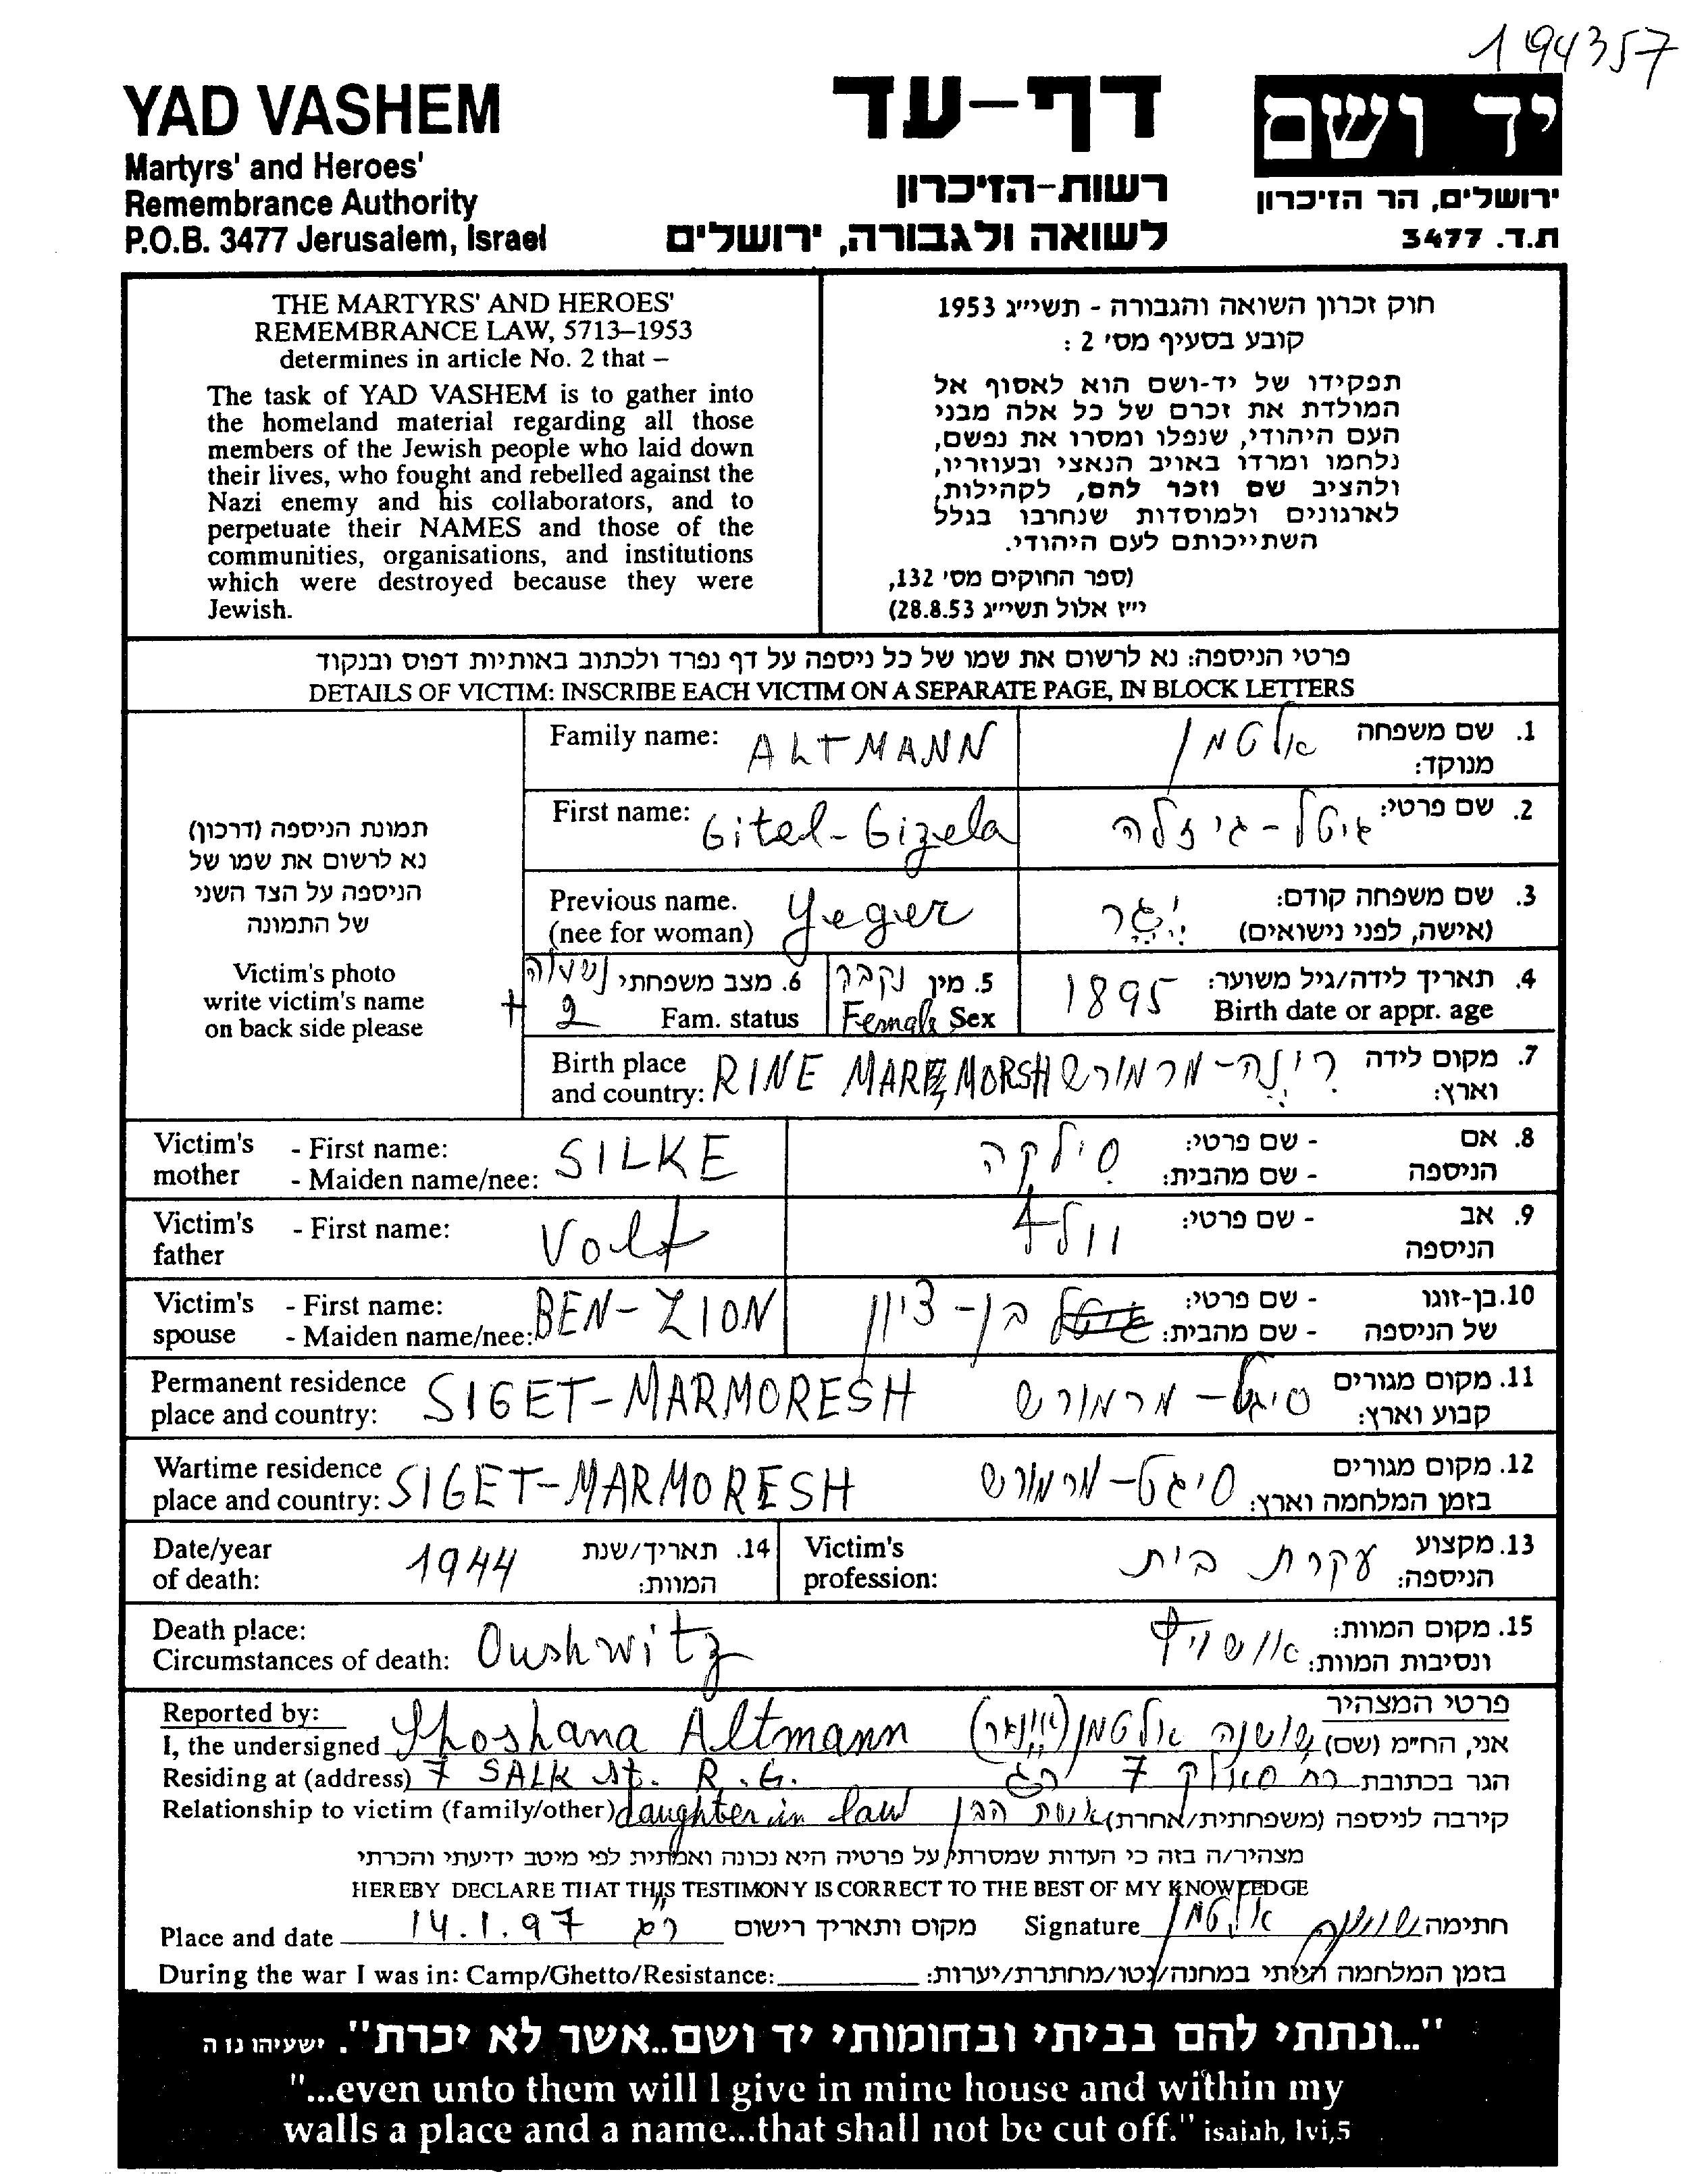 194357
YAD VASHEM
Martyrs' and Heroes'
Remembrance Authority
P.O.B. 3477 Jerusalem, Israel
דף-עד
רשות-הזיכרון
לשואה ולגבורה, ירושלים
יד ושם
ירושלים, הר הזיכרון
ת.ד. 3477
THE MARTYRS' AND HEROES'
REMEMBRANCE LAW, 5713–1953
determines in article No. 2 that –
The task of YAD VASHEM is to gather into
the homeland material regarding all those
members of the Jewish people who laid down
their lives, who fought and rebelled against the
Nazi enemy and his collaborators, and to
perpetuate their NAMES and those of the
communities, organisations, and institutions
which were destroyed because they were
Jewish.
חוק זכרון השואה והגבורה - תשי״ג 1953
קובע בסעיף מס׳ 2 :
תפקידו של יד-ושם הוא לאסוף אל
המולדת את זכרם של כל אלה מבני
העם היהודי, שנפלו ומסרו את נפשם,
נלחמו ומרדו באויב הנאצי ובעוזריו,
ולהציב שם וזכר להם, לקהילות,
לארגונים ולמוסדות שנחרבו בגלל
השתייכותם לעם היהודי.
(ספר החוקים מס׳ 132,
י״ז אלול תשי״ג 28.8.53)
פרטי הניספה: נא לרשום את שמו של כל ניספה על דף נפרד ולכתוב באותיות דפוס ובנקוד
DETAILS OF VICTIM: INSCRIBE EACH VICTIM ON A SEPARATE PAGE, IN BLOCK LETTERS
תמונת הניספה (דרכון)
נא לרשום את שמו של
הניספה על הצד השני
של התמונה
Victim's photo
write victim's name
on back side please
Family name: ALTMANN
1. שם משפחה מנוקד: אלטמן
First name: Gitel-Gizela
2. שם פרטי: גיטל-גיזלה
Previous name. (nee for woman) Yeger
3. שם משפחה קודם: (אישה, לפני נישואים) יגר
4. תאריך לידה/גיל משוער: 1895
Birth date or appr. age
5. מין נקבה
Female Sex
6. מצב משפחתי נשואה
+ 2 Fam. status
Birth place and country: RINE MAREMORSH
7. מקום לידה וארץ: רינה-מרמורש
Victim's mother - First name: SILKE
- Maiden name/nee:
8. אם הניספה - שם פרטי: סילקה
- שם מהבית:
Victim's father - First name: Volf
9. אב הניספה - שם פרטי: וולף
Victim's spouse - First name: BEN-ZION
- Maiden name/nee:
10. בן-זוגו של הניספה - שם פרטי: בן-ציון
- שם מהבית:
Permanent residence place and country: SIGET-MARMORESH
11. מקום מגורים קבוע וארץ: סיגט-מרמורש
Wartime residence place and country: SIGET-MARMORESH
12. מקום מגורים בזמן המלחמה וארץ: סיגט-מרמורש
Date/year of death: 1944
14. תאריך/שנת המוות:
Victim's profession:
13. מקצוע הניספה: עקרת בית
Death place:
Circumstances of death: Oushwitz
15. מקום המוות: ונסיבות המוות: אושויץ
Reported by:
פרטי המצהיר
I, the undersigned Shoshana Altmann
אני, הח״מ (שם) שושנה אלטמן
Residing at (address) 7 SALK st. R.G.
הגר בכתובת רח סאלק 7 רג
Relationship to victim (family/other) daughter in law
קירבה לניספה (משפחתית/אחרת) אשת הבן
מצהיר/ה בזה כי העדות שמסרתי על פרטיה היא נכונה ואמתית לפי מיטב ידיעתי והכרתי
HEREBY DECLARE THAT THIS TESTIMONY IS CORRECT TO THE BEST OF MY KNOWLEDGE
Place and date 14.1.97 רג מקום ותאריך רישום
Signature שושנה אלטמן חתימה
During the war I was in: Camp/Ghetto/Resistance:
בזמן המלחמה הייתי במחנה/גטו/מחתרת/יערות:
"...ונתתי להם בביתי ובחומותי יד ושם..אשר לא יכרת". ישעיהו נו ה
"...even unto them will I give in mine house and within my
walls a place and a name...that shall not be cut off." isaiah, lvi,5